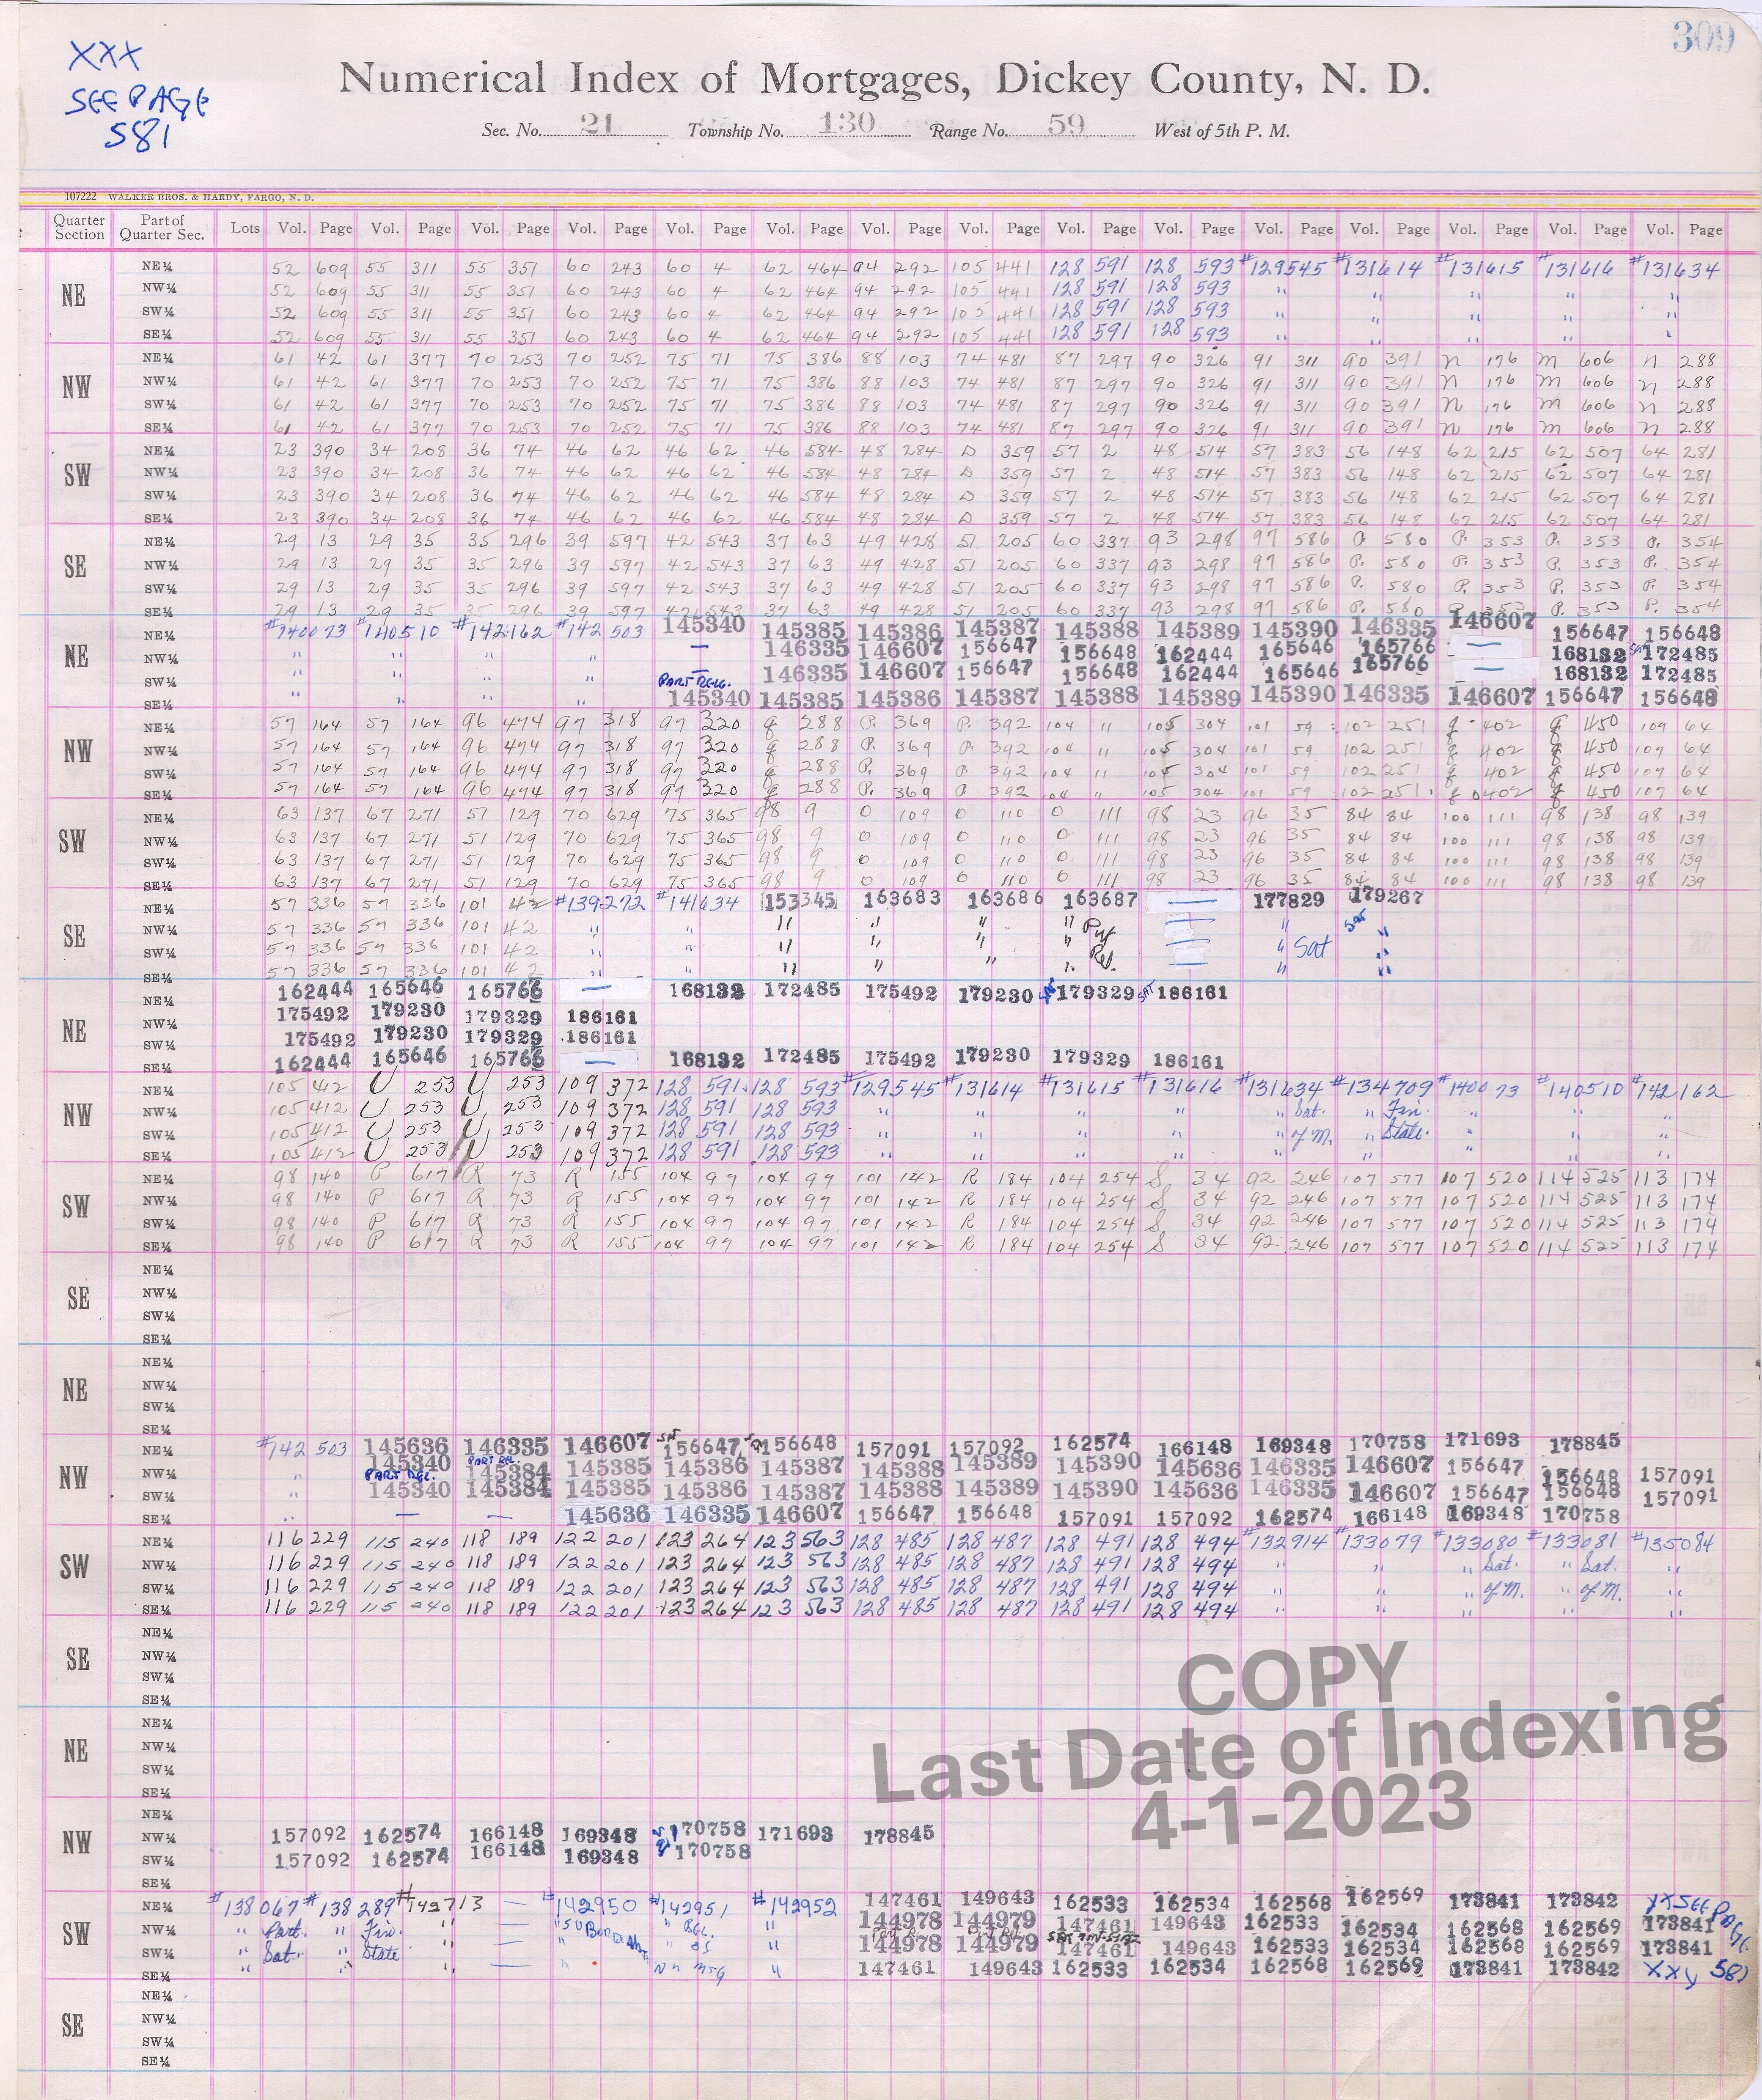 309
XXX
SEE PAGE
581
Numerical Index of Mortgages, Dickey County, N. D.
Sec. No. 21 Township No. 130 Range No. 59 West of 5th P. M.
107222 WALKER BROS. & HARDY, FARGO, N. D.
Quarter Section Part of Quarter Sec. Lots Vol. Page Vol. Page Vol. Page Vol. Page Vol. Page Vol. Page Vol. Page Vol. Page Vol. Page Vol. Page Vol. Page Vol. Page Vol. Page Vol. Page Vol. Page
NE
NE¼ 52 609 55 311 55 351 60 243 60 4 62 464 94 292 105 441 128 591 128 593 #129545 #131614 #131615 #131616 #131634
NW¼ 52 609 55 311 55 351 60 243 60 4 62 464 94 292 105 441 128 591 128 593 " " " " "
SW¼ 52 609 55 311 55 351 60 243 60 4 62 464 94 292 105 441 128 591 128 593 " " " " "
SE¼ 52 609 55 311 55 351 60 243 60 4 62 464 94 292 105 441 128 591 128 593 " " " "
NW
NE¼ 61 42 61 377 70 253 70 252 75 71 75 386 88 103 74 481 87 297 90 326 91 311 90 391 n 176 m 606 n 288
NW¼ 61 42 61 377 70 253 70 252 75 71 75 386 88 103 74 481 87 297 90 326 91 311 90 391 n 176 m 606 n 288
SW¼ 61 42 61 377 70 253 70 252 75 71 75 386 88 103 74 481 87 297 90 326 91 311 90 391 n 176 m 606 n 288
SE¼ 61 42 61 377 70 253 70 252 75 71 75 386 88 103 74 481 87 297 90 326 91 311 90 391 n 176 m 606 n 288
SW
NE¼ 23 390 34 208 36 74 46 62 46 62 46 584 48 284 D 359 57 2 48 514 57 383 56 148 62 215 62 507 64 281
NW¼ 23 390 34 208 36 74 46 62 46 62 46 584 48 284 D 359 57 2 48 514 57 383 56 148 62 215 62 507 64 281
SW¼ 23 390 34 208 36 74 46 62 46 62 46 584 48 284 D 359 57 2 48 514 57 383 56 148 62 215 62 507 64 281
SE¼ 23 390 34 208 36 74 46 62 46 62 46 584 48 284 D 359 57 2 48 514 57 383 56 148 62 215 62 507 64 281
SE
NE¼ 29 13 29 35 35 296 39 597 42 543 37 63 49 428 51 205 60 337 93 298 97 586 P. 580 P. 353 P. 353 P. 354
NW¼ 29 13 29 35 35 296 39 597 42 543 37 63 49 428 51 205 60 337 93 298 97 586 P. 580 P. 353 P. 353 P. 354
SW¼ 29 13 29 35 35 296 39 597 42 543 37 63 49 428 51 205 60 337 93 298 97 586 P. 580 P. 353 P. 353 P. 354
SE¼ 29 13 29 35 35 296 39 597 42 543 37 63 49 428 51 205 60 337 93 298 97 586 P. 580 P. 353 P. 353 P. 354
NE
NE¼ #140073 #140510 #142162 #142503 145340 145385 145386 145387 145388 145389 145390 146335 146607 156647 156648
NW¼ " " " " — 146335 146607 156647 156648 162444 165646 165766 — 168132 SAT 172485
SW¼ " " " " PART REL. — 146335 146607 156647 156648 162444 165646 165766 — 168132 172485
SE¼ " " " " 145340 145385 145386 145387 145388 145389 145390 146335 146607 156647 156648
NW
NE¼ 57 164 57 164 96 474 97 318 97 320 q 288 P. 369 P. 392 104 " 105 304 101 59 102 251 q 402 q 450 109 64
NW¼ 57 164 57 164 96 474 97 318 97 320 q 288 P. 369 P. 392 104 " 105 304 101 59 102 251 q 402 q 450 107 64
SW¼ 57 164 57 164 96 474 97 318 97 320 q 288 P. 369 P. 392 104 " 105 304 101 59 102 251 q 402 q 450 107 64
SE¼ 57 164 57 164 96 474 97 318 97 320 q 288 P. 369 P. 392 104 " 105 304 101 59 102 251 q 402 q 450 107 64
SW
NE¼ 63 137 67 271 51 129 70 629 75 365 98 9 O 109 O 110 O 111 98 23 96 35 84 84 100 111 98 138 98 139
NW¼ 63 137 67 271 51 129 70 629 75 365 98 9 O 109 O 110 O 111 98 23 96 35 84 84 100 111 98 138 98 139
SW¼ 63 137 67 271 51 129 70 629 75 365 98 9 O 109 O 110 O 111 98 23 96 35 84 84 100 111 98 138 98 139
SE¼ 63 137 67 271 51 129 70 629 75 365 98 9 O 109 O 110 O 111 98 23 96 35 84 84 100 111 98 138 98 139
SE
NE¼ 57 336 57 336 101 42 #139272 #141634 153345 163683 163686 163687 — 177829 179267
NW¼ 57 336 57 336 101 42 " " " " " " — " SAT "
SW¼ 57 336 57 336 101 42 " " " " " " — " Sat "
SE¼ 57 336 57 336 101 42 " " " " " " Rel. — " "
NE
NE¼ 162444 165646 165766 — 168132 172485 175492 179230 SAT 179329 SAT 186161
NW¼ 175492 179230 179329 186161
SW¼ 175492 179230 179329 186161
SE¼ 162444 165646 165766 — 168132 172485 175492 179230 179329 186161
NW
NE¼ 105 412 U 253 U 253 109 372 128 591 128 593 #129545 #131614 #131615 #131616 #131634 #134709 #140073 #140510 #142162
NW¼ 105 412 U 253 U 253 109 372 128 591 128 593 " " " " " Sat. " Fin. " " "
SW¼ 105 412 U 253 U 253 109 372 128 591 128 593 " " " " " of M. " State. " " "
SE¼ 105 412 U 253 U 253 109 372 128 591 128 593
SW
NE¼ 98 140 P 617 R 73 R 155 104 97 104 97 101 142 R 184 104 254 S 34 92 246 107 577 107 520 114 525 113 174
NW¼ 98 140 P 617 R 73 R 155 104 97 104 97 101 142 R 184 104 254 S 34 92 246 107 577 107 520 114 525 113 174
SW¼ 98 140 P 617 R 73 R 155 104 97 104 97 101 142 R 184 104 254 S 34 92 246 107 577 107 520 114 525 113 174
SE¼ 98 140 P 617 R 73 R 155 104 97 104 97 101 142 R 184 104 254 S 34 92 246 107 577 107 520 114 525 113 174
SE
NE¼
NW¼
SW¼
SE¼
NE
NE¼
NW¼
SW¼
SE¼
NW
NE¼ #142503 145636 146335 146607 SAT 156647 SAT 156648 157091 157092 162574 166148 169348 170758 171693 178845
NW¼ " 145340 PART REL. 145384 PART REL. 145385 145386 145387 145388 145389 145390 145636 146335 146607 156647 156648 157091
SW¼ " 145340 145384 145385 145386 145387 145388 145389 145390 145636 146335 146607 156647 156648 157091
SE¼ " — — 145636 146335 146607 156647 156648 157091 157092 162574 166148 169348 170758
SW
NE¼ 116 229 115 240 118 189 122 201 123 264 123 563 128 485 128 487 128 491 128 494 #132914 #133079 #133080 #133081 #135084
NW¼ 116 229 115 240 118 189 122 201 123 264 123 563 128 485 128 487 128 491 128 494 " " " Sat. " Sat. "
SW¼ 116 229 115 240 118 189 122 201 123 264 123 563 128 485 128 487 128 491 128 494 " " " of M. " of M. "
SE¼ 116 229 115 240 118 189 122 201 123 264 123 563 128 485 128 487 128 491 128 494 " " " " "
SE
NE¼
NW¼
SW¼
SE¼
NE
NE¼
NW¼
SW¼
SE¼
NW
NE¼
NW¼ 157092 162574 166148 169348 170758 171693 178845
SW¼ 157092 162574 166148 169348 170758
SE¼
SW
NE¼ #138067 #138289 #142713 — #142950 #142951 #142952 147461 149643 162533 162534 162568 162569 173841 173842 XX SEE PAGE
NW¼ " Part. " Fin. " — " " REL. " 144978 144979 147461 149643 162533 162534 162568 162569 173841
SW¼ " Sat. " State " — " " OF " 144978 144979 147461 149643 162533 162534 162568 162569 173841
SE¼ " " " — " MTG " 147461 149643 162533 162534 162568 162569 173841 173842 XXX 581
SE
NE¼
NW¼
SW¼
SE¼
COPY
Last Date of Indexing
4-1-2023